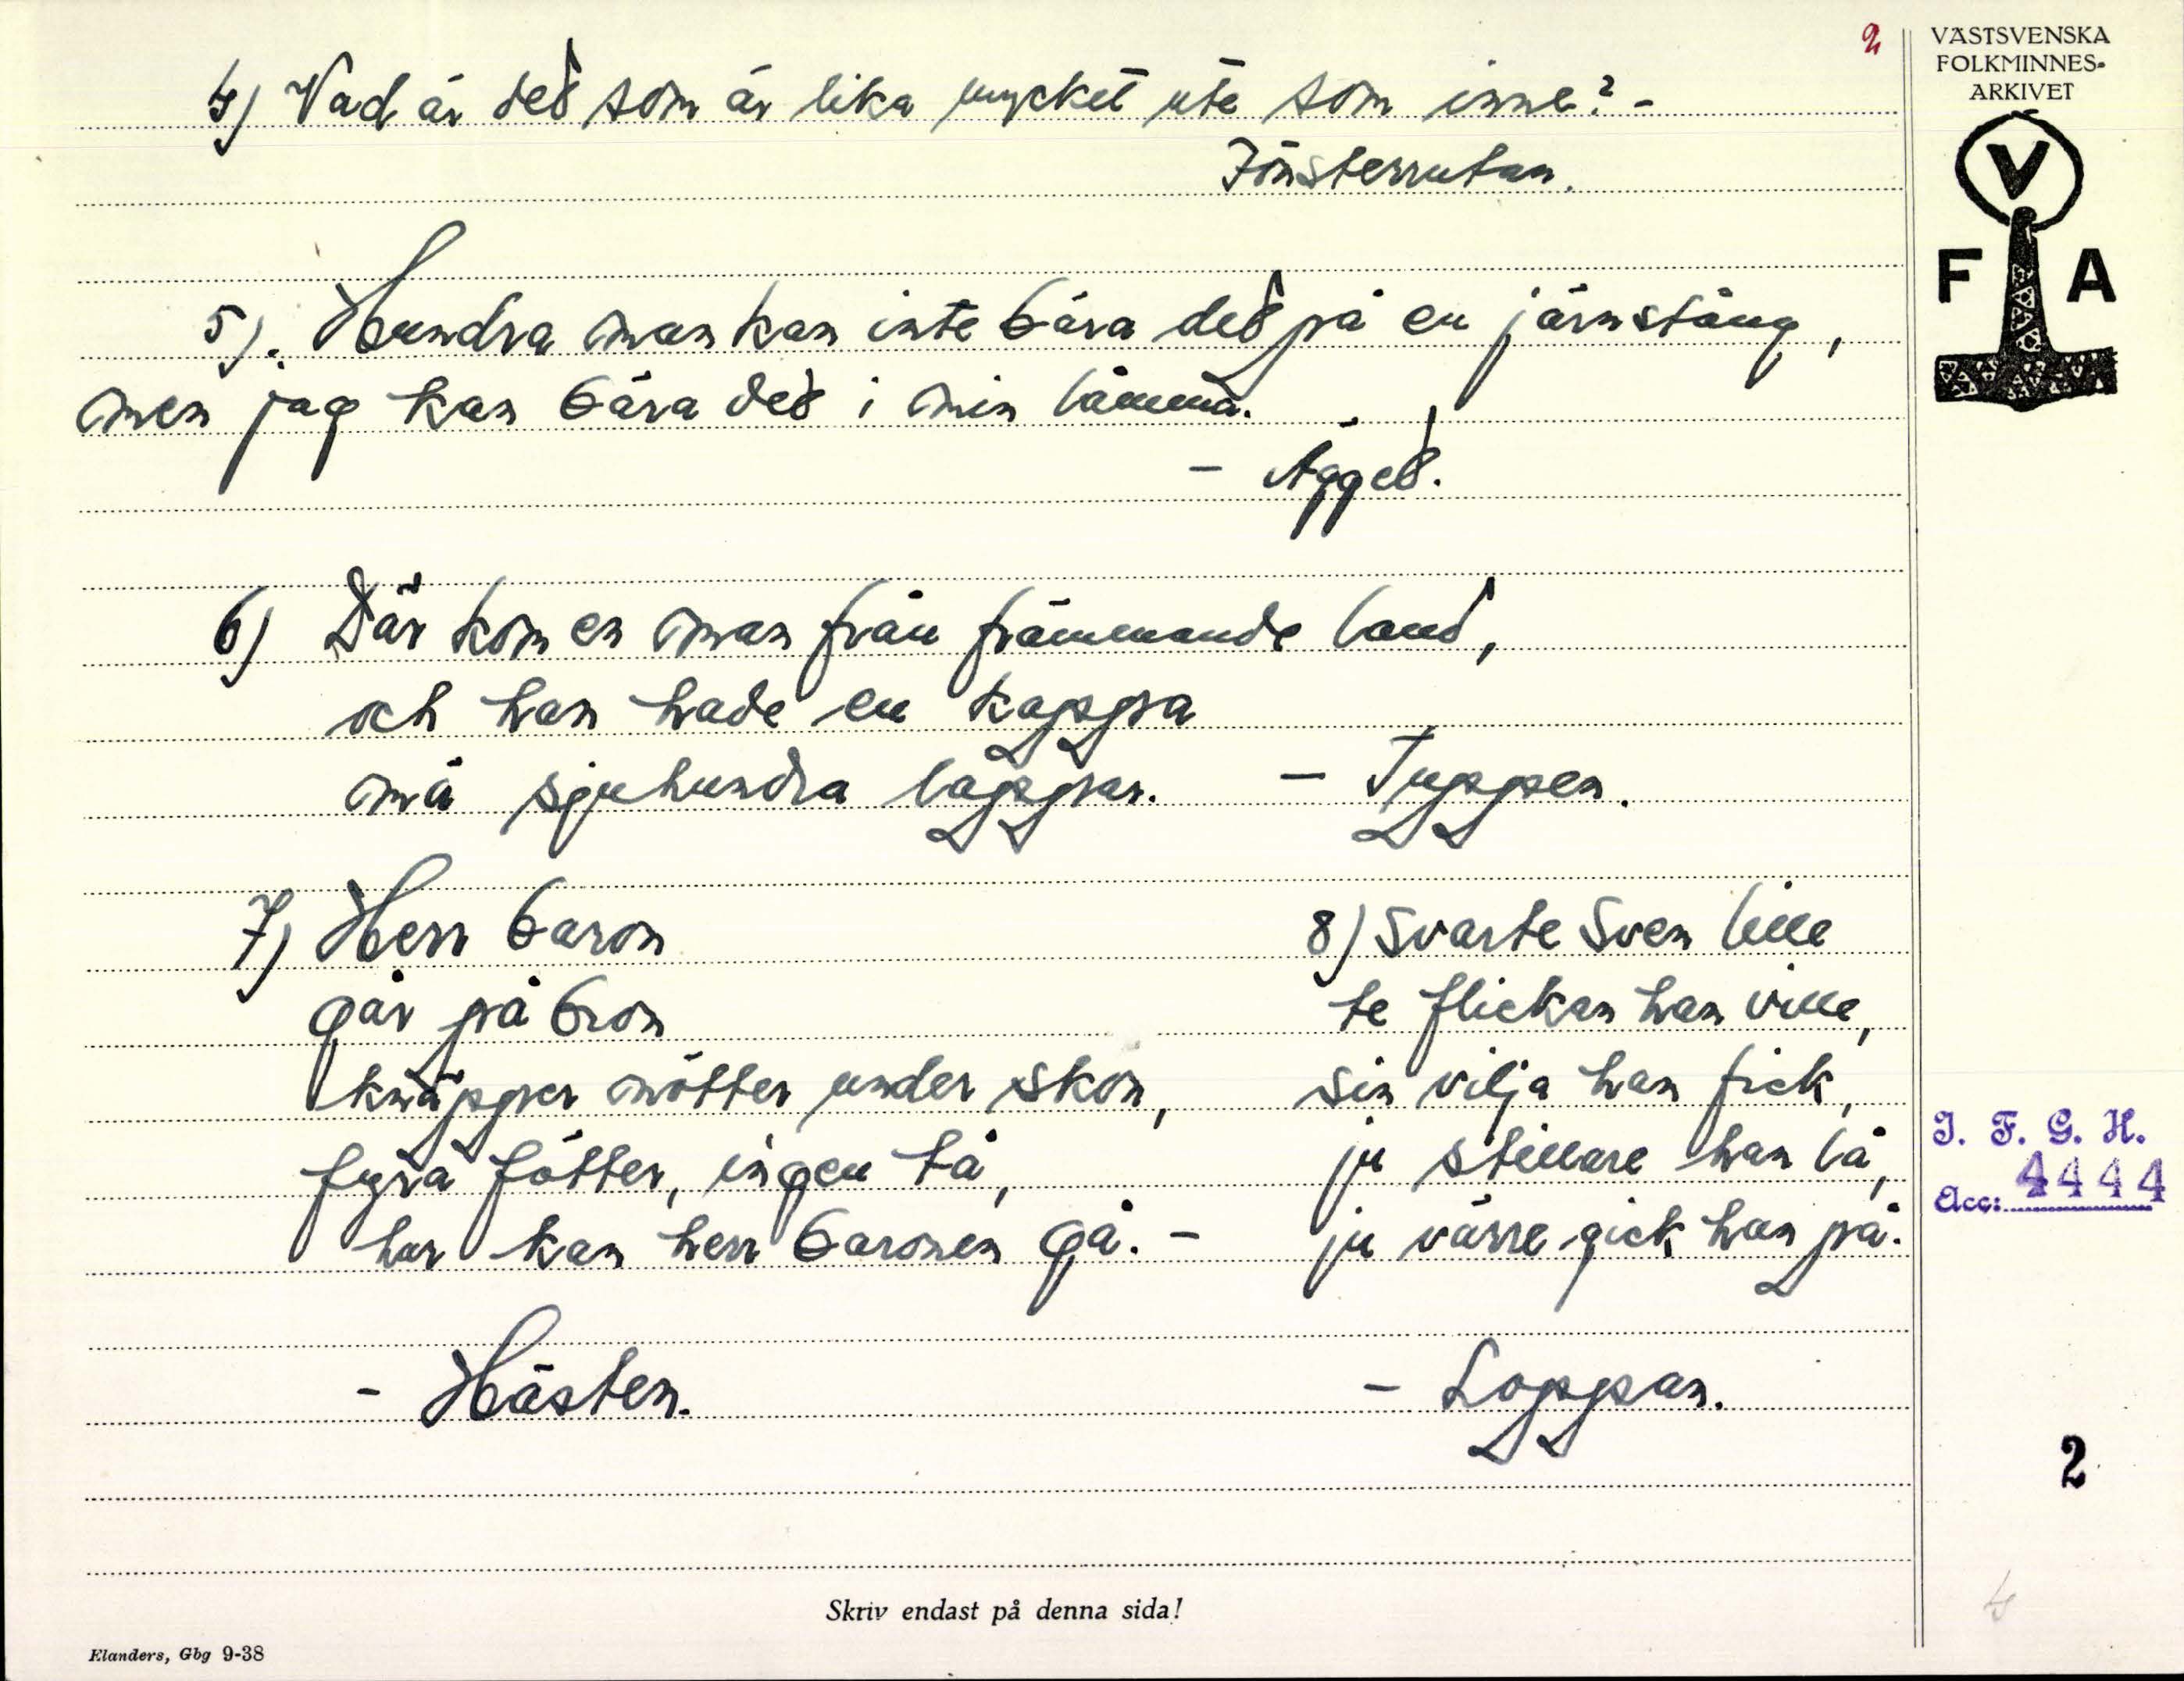 2
VÄSTSVENSKA
FOLKMINNES-
ARKIVET
V
F A
4) Vad är ded som är lika mycket ute som inne? -
Fönsterrutan.
5). Hundra man kan inte bära ded på en järnstång,
men jag kan bära ded i min lämma.
- Ägged.
6) Där kom en man från främmande land,
och han hade en kappa
mä sjuhundra lappar. - Tuppen.
7) Herr baron
går på bron
knäpper nötter under skon,
fyra fötter, ingen tå,
hur kan herr baronen gå. -
- Hästen.
8) Svarte Sven lille
te flickan han ville,
sin vilja han fick,
ju stillare han lå,
ju värre gick han på.
- Loppan.
I. F. G. H.
Acc: 4444
2
4
Skriv endast på denna sida!
Elanders, Gbg 9-38